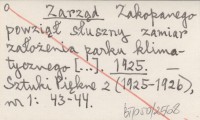 a
Zarząd Zakopanego
powziął słuszny zamiar
założenia parku klima-
tycznego [...]. 1925. –
Sztuki Piękne 2 (1925-1926),
nr 1: 43-44.